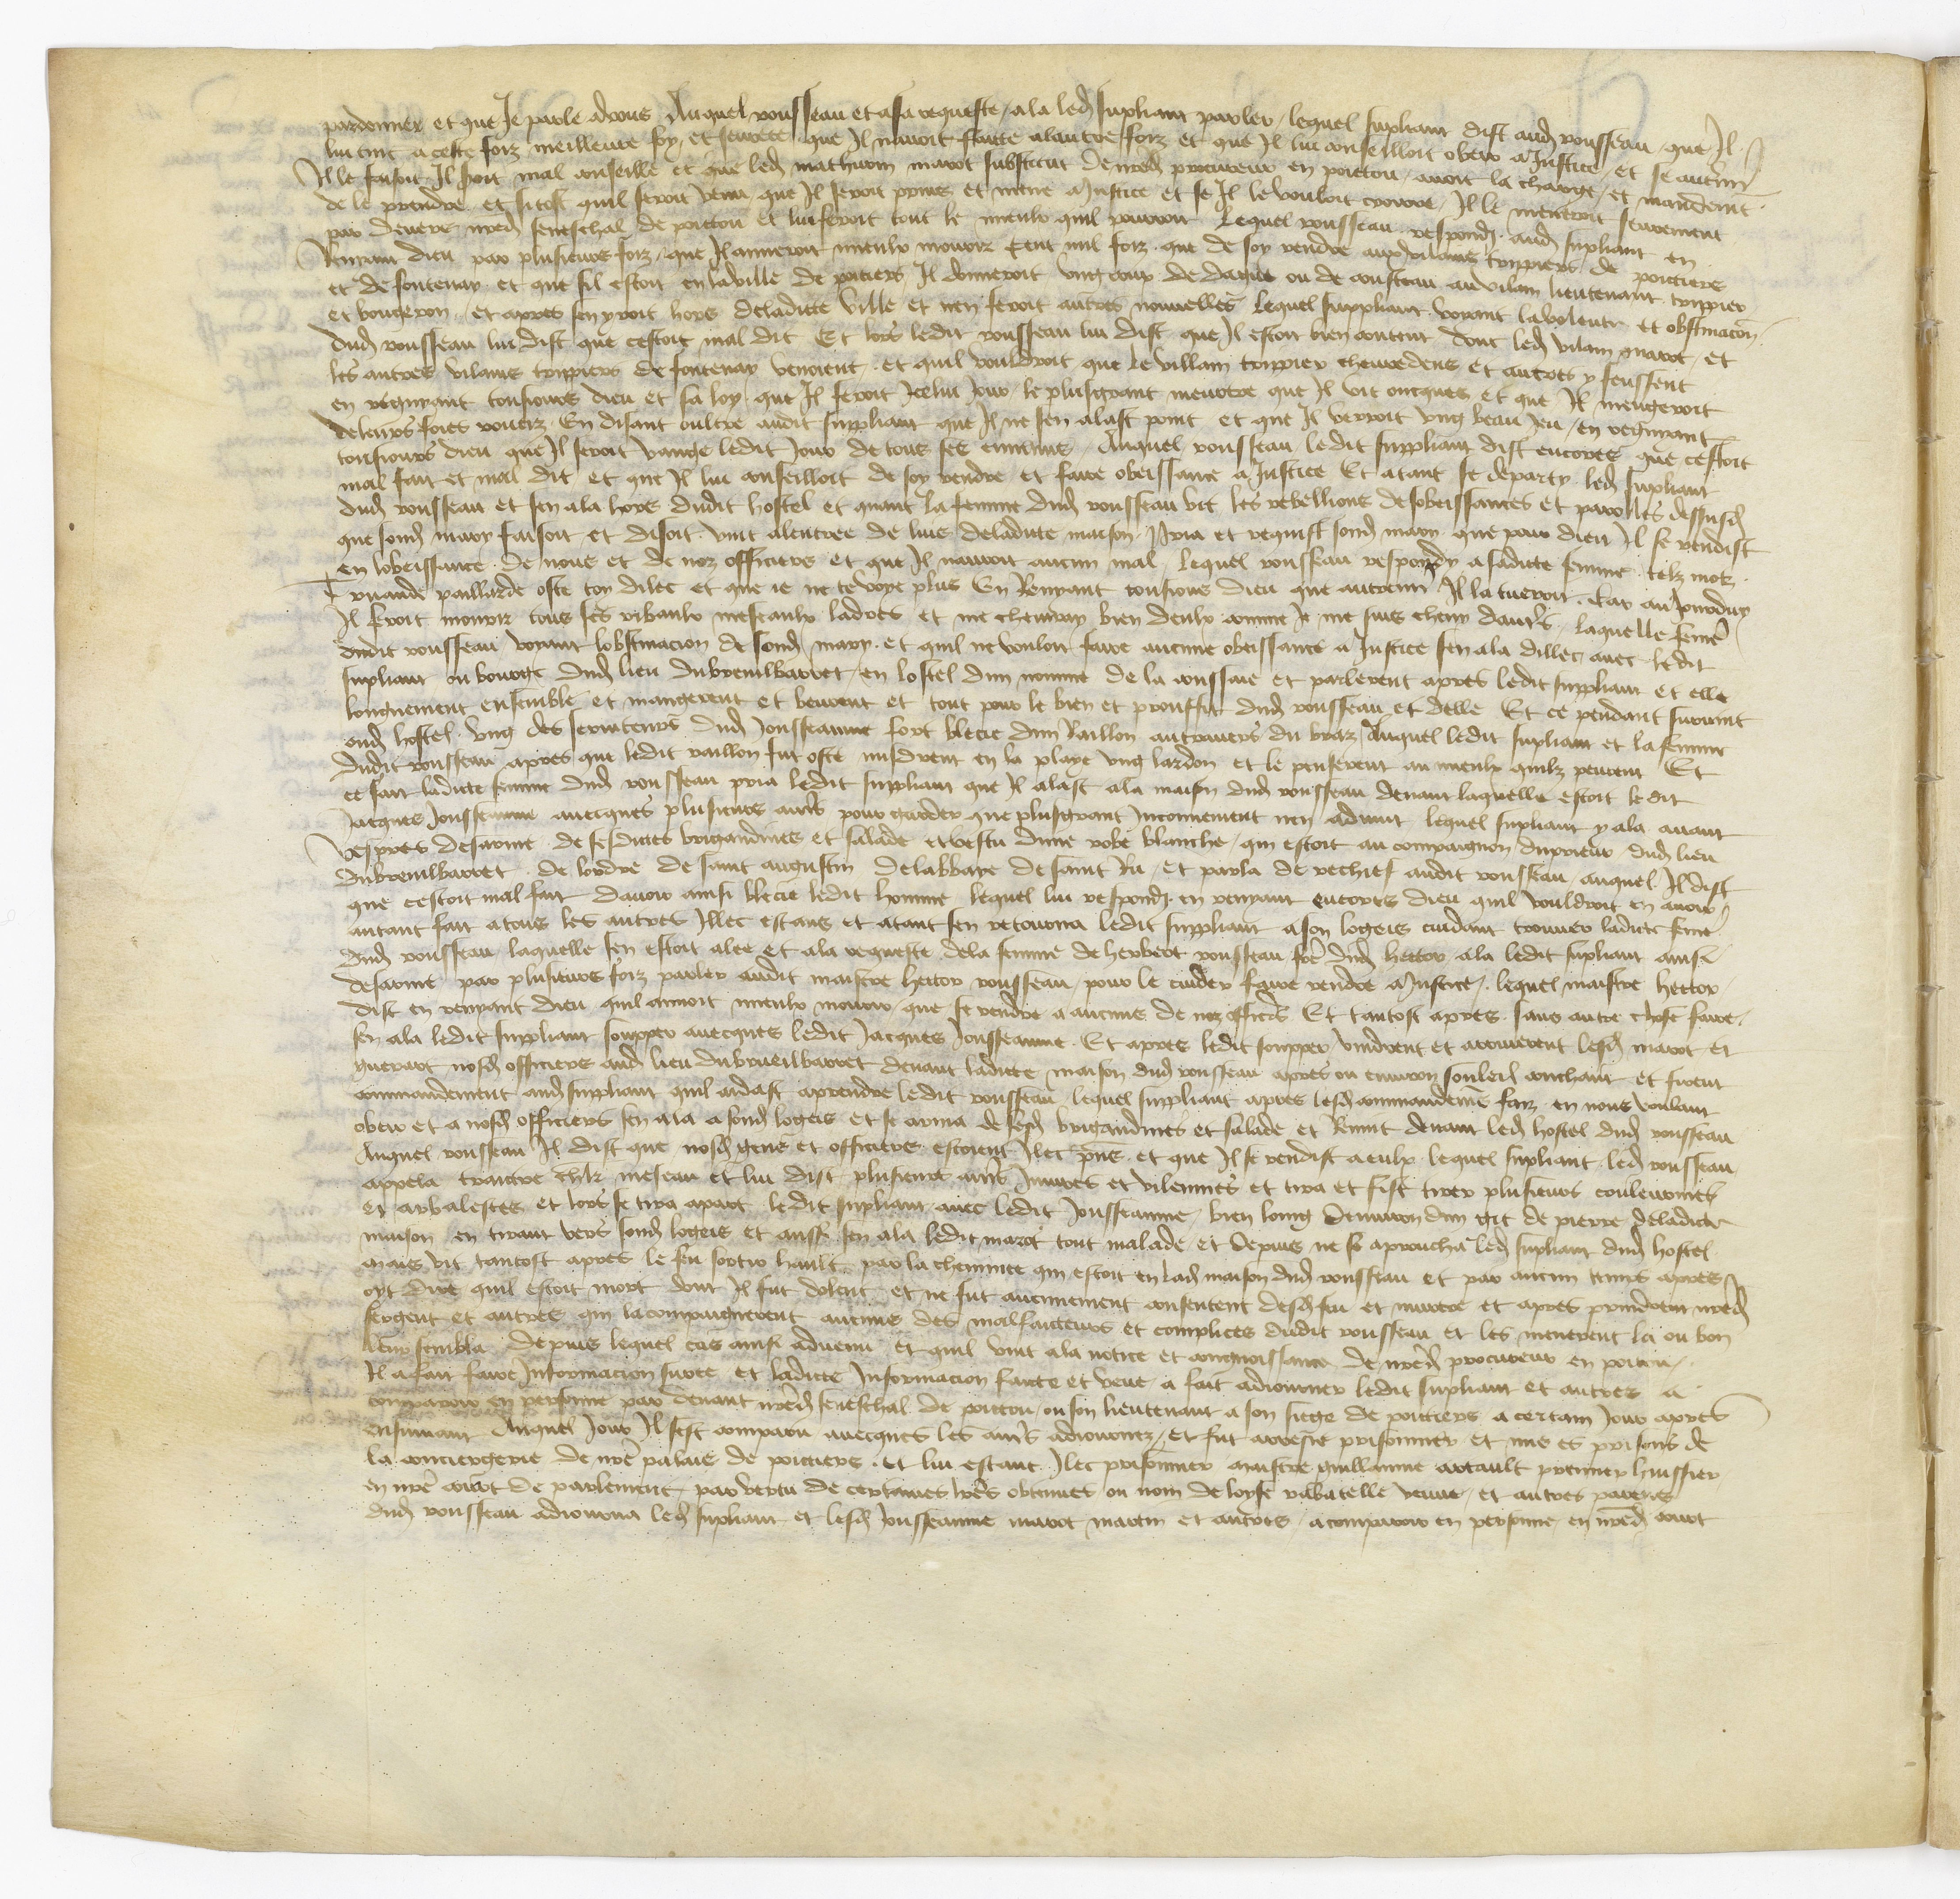 pardonner et que Je parle a vous Auquel rousseau et a sa requeste ala led suppliant parler lequel suppliant dist aud rousseau que Il
lui tint a ceste foiz meilleure foy et seurete que Il navoit faicte a lautre foiz et que Il lui conseilloit obeir a Justice et se autrem
Il le faisoit Il seroit mal conseille et que led mathurin marot substitut de nred procureur en poictou avoit la charge et mandemt
de le prendre et si tost quil seroit venu que Il seroit prins et mene a Justice et se Il le vouloit croire Il le meneroit seurement
par devers nred seneschal de poictou et lui feroit tout le mieulx quil pourroit Lequel rousseau respond aud suppliant en
Renyant dieu par plusieurs foiz que Il aymeroit mieulx mourir cent mil foiz que de soy rendre aux vilains trippiers de poictiers
et de fontenay et que sil estoit en la ville de poictiers Il donneroit ung coup de dague ou de cousteau au vilain lieutenant trippier
et bougeron et apres sen yroit hors de ladicte ville et nen seroit autres nouvelles lequel suppliant voyant la volente et obstinacion
dud rousseau lui dist que cestoit mal dit Et lors ledit rousseau lui dist que Il estoit bien content dont led vilain marot et
les autres vilains trippiers de fontenay venoient et quil vouldroit que le villain trippier cheuredens et autres y feussent
en regnyant tousiours dieu et sa loy que Il feroit icelui jour le plus grant meurtre que Il vit oncques et que Il mengeroit
de leurs foies rouez En disant oultre audit suppliant que Il ne sen alast point et que Il verroit ung beau jeu en regnyant
tousiours dieu que Il seroit vange ledit Jour de tous ses ennemis Auquel rousseau ledit suppliant dist encores que cestoit
mal fait et mal dit et que Il lui conseilloit de soy rendre et faire obeissance a Justice Et atant se departy led suppliant
dud rousseau et sen ala hors dudit hostel et quant la femme dud rousseau vit les rebellions desobeissances et parolles dessusd
que sond mary faisoit et disoit vint a lentree de luis de ladicte maison pria et requist sond mary que pour dieu Il se rendist
en lobeissance de nous et de noz officiers et que Il nauroit aucun mal lequel rousseau respondy a sadicte femme telz motz
truande paillarde oste toy dilec et que ie ne te voye plus En Renyant tousiours dieu que autrem Il la tueroit Car au jourduy
Il feroit mourir tous ses ribaulx meseaulx ladres et me cheuiray bien deulx comme Je me suis cheuy dautrs laquelle feme
dudit rousseau voyant lobstinacion de sond mary et quil ne vouloit faire aucune obeissance a Justice sen ala dillec avec ledit
suppliant ou bourgc dud lieu du breuilbarret en lostel dun nomme de la coussaie et parlerent apres ledit suppliant et elle
longuement ensemble et mangerent et beurent et tout pour le bien et prouffit dud rousseau et delle Et ce pendant survint
oud hostel ung des serviteurs dud Jousseaume fort blecie dun Raillon autravers du braz Auquel ledit suppliant et la femme
dudit rousseau apres que ledit raillon fut oste misdrent en la playe ung lardon et le penserent au mieulx quilz peurent Et
ce fait ladicte femme dud rousseau pria ledit suppliant que Il alast ala maison dud rousseau devant laquelle estoit ledit
Jacques Jousseaume avecques plusieurs autrs pour garder que plus grant Inconvenient nen advint lequel suppliant y ala avant
vespres desarme de sesdictes brigandines et salade et vestu dune robe blanche qui estoit au compaignon du prieur dud lieu
du breuilbarret de lordre de saint augustin de labbaye de saint Ru et parla de rechief audit rousseau auquel Il dist
que cestoit mal fait davoir ainsi blecie ledit homme lequel lui respond en renyant encores dieu quil vouldroit en avoir
autant fait a tous les autres Illec estans et atant sen retourna ledit suppliant a son logeis cuidant trouver ladicte feme
dud rousseau laquelle sen estoit alee et ala requeste de la femme de herbert rousseau frē dud hector ala ledit suppliant ainsi
desarme par plusieurs foiz parler audit maistre hector rousseau pour le cuider faire rendre a Justice lequel maistre hector
dist en renyant dieu quil aimoit mieulx mourir que se rendre a aucuns de noz officrs Et tantost apres sans autre chose faire
sen ala ledit suppliant soupper avecques ledit Jacques Jousseaume Et apres ledit soupper vindrent et arriverent lesd marot et
guerart nosd officiers aud lieu du brueilbarret devant ladicte maison dud rousseau apres ou environ souleil couchant et firent
commandement aud suppliant quil aidast a prendre ledit rousseau lequel suppliant apres lesd commandemēs faiz en nous voulant
obeir et a nosd officiers sen ala a sond logeis et se arma de sesd brigandines et salade et Revint devant led hostel dud rousseau
Auquel rousseau Il dist que nosd gens et officiers estoient Ilec pns et que Il se rendist a eulx lequel suppliant led rousseau
appela traictre meseau et lui dist plusieurs autrs Injures et vilennies et tira et fist tirer plusieurs couleuvrines
et arbalestes et lors se tira apart ledit suppliant avec ledit Jousseaume bien loing denviron dun git de pierre de ladicte
maison en tirant vers sond logeis et aussi sen ala ledit marot tout malade et depuis ne se aproucha led suppliant dud hostel
mais vit tantost apres le feu sortir hault par la cheminee qui estoit en lad maison dud rousseau et par aucun temps apres
oyt dire quil estoit mort dont Il fut dolent et ne fut aucunement consentent desd feu et murtre et apres prindrent nred
sergent et autres qui lacompaignerent aucuns des malfaicteurs et complices dudit rousseau et les menerent la ou bon
leur sembla depuis lequel cas ainsi advenu et quil vint ala notice et congnoissance de nred procureur en poictou
Il a fait faire Informacion sur ce et ladicte Informacion faicte et veue a fait adiourner ledit suppliant et autres a
comparoir en personne par devant nred seneschal de poictou ou son lieutenant a son siege de poictiers a certain jour apres
ensuivant Auquel jour Il sest comparu avecques les autrs adiournez et fut arreste prisonnier et mis es prisons de
la conciergerie de nrē palais de poictiers et lui estant Ilec prisonnier maistre guillaume artault premier huissier
en nrē court de parlement par vertu de certaines lrēs obtenues ou nom de loyse rabatelle veuve et autres parens
dud rousseau adiourna led suppliant et lesd Jousseaume marot martin et autres a comparoir en personne en nred court